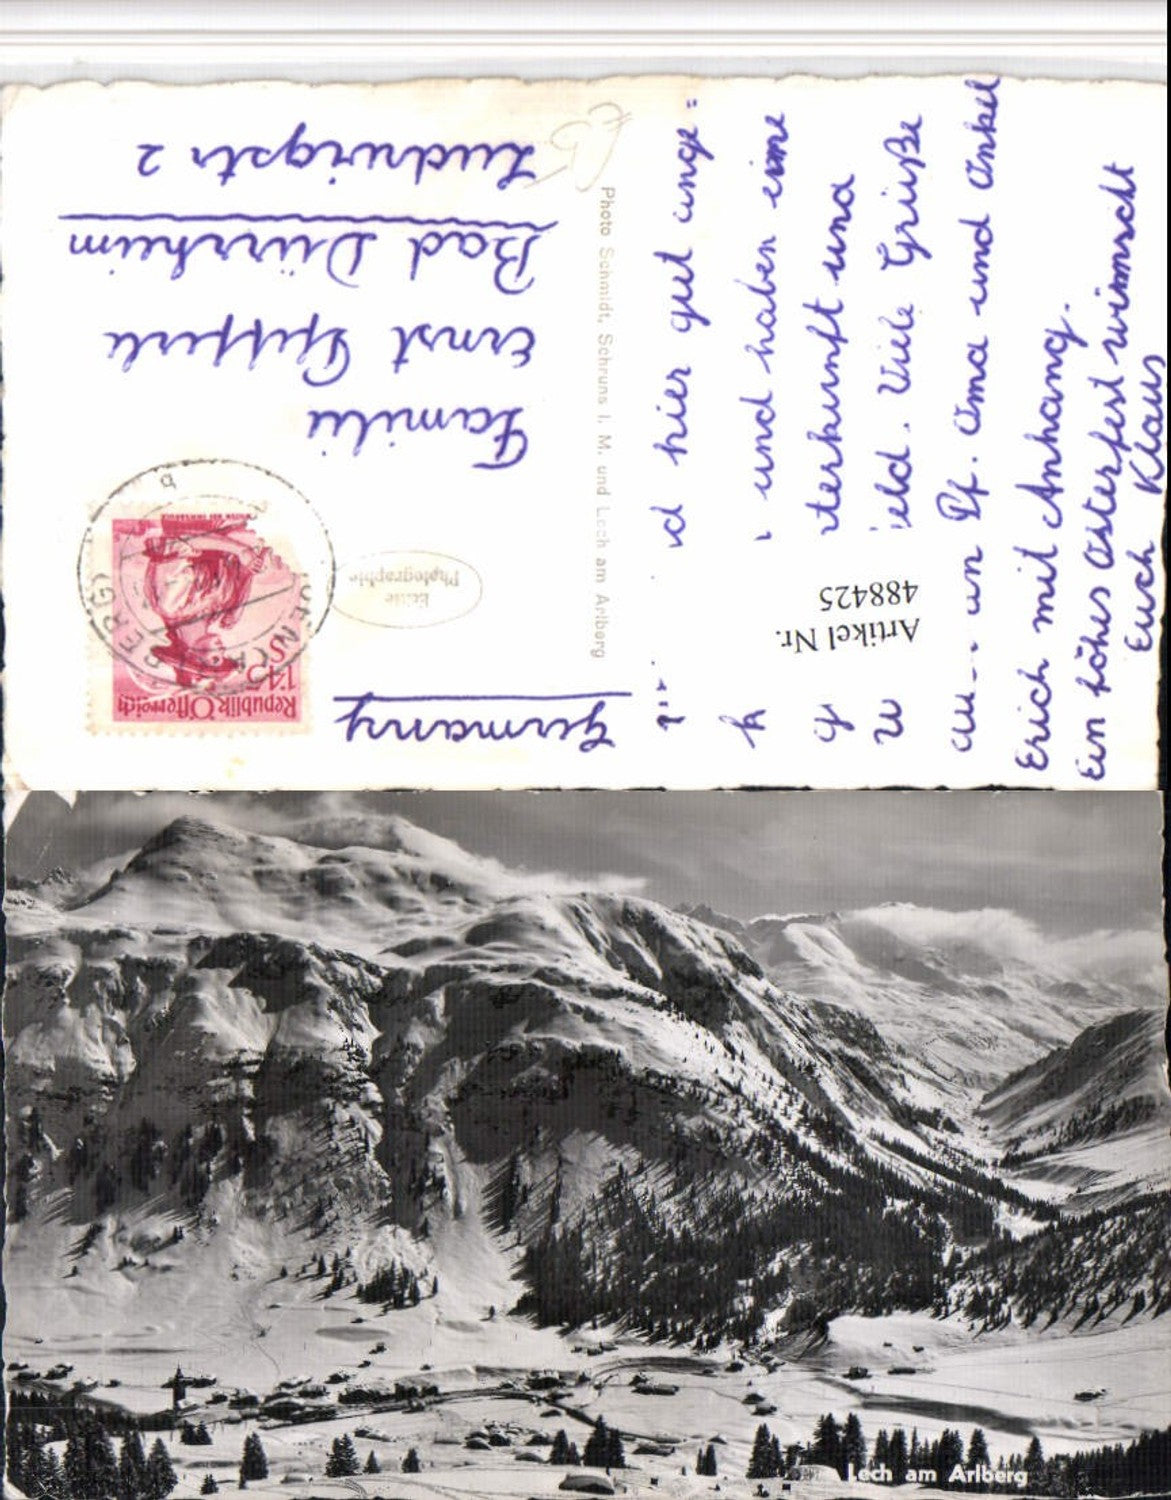 Republik Österreich
1'45
S
Germany
Echte
Photographie
Familie
Ernst
Bad Dürrheim
Ludwigstr 2
Photo Schmidt, Schruns i. M. und Lech am Arlberg
Artikel Nr.
488425
hier gut ange=
k und haben eine
g terkunft und
eld. Viele Grüße
an Pf. Oma und Onkel
Erich mit Anhang.
Ein frohes Osterfest wünscht
Euch Klaus
Lech am Arlberg